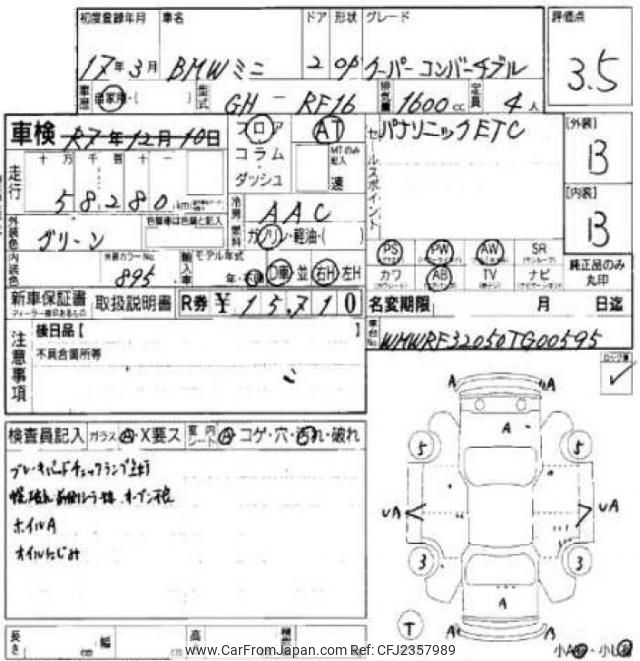 初度登録年月 車名 ドア 形状 グレード 評価点
17年3月 BMWミニ 2 OP クーパー コンバーチブル 3.5
車歴 自家用・( ) 型式 GH - RF16 排気量 1600cc 定員 4人
車検 R7年12月10日 フロア AT セールスポイント パナソニックETC [外装]
十万千百十一 コラム・ MTのみ記入 B
走行 58280km ダッシュ 速
冷房 AAC [内装]
外装色 グリーン 色替車は色番と記入 燃料 ガソリン・軽油・( ) B
PS PW AW SR
内装色 外装カラーNo. 895 輸入車 モデル年式 年・不明 D車 並 右H 左H カワ AB TV ナビ 純正品のみ丸印
新車保証書 取扱説明書 R券 ¥15,710 名変期限 月 日迄
注意事項 後日品【 】 車台No. WMWRF32050TG00595
不具合箇所等
検査員記入 ガラス A・X要ス 室内シート A・コゲ・穴・汚れ・破れ
ブレーキパッドチェックランプ点灯
ホイルA
オイルにじみ
A A
A
5 5
UA UA
3 3
A
T A A
長さ cm 幅 cm 高
www.CarFromJapan.com Ref: CFJ2357989